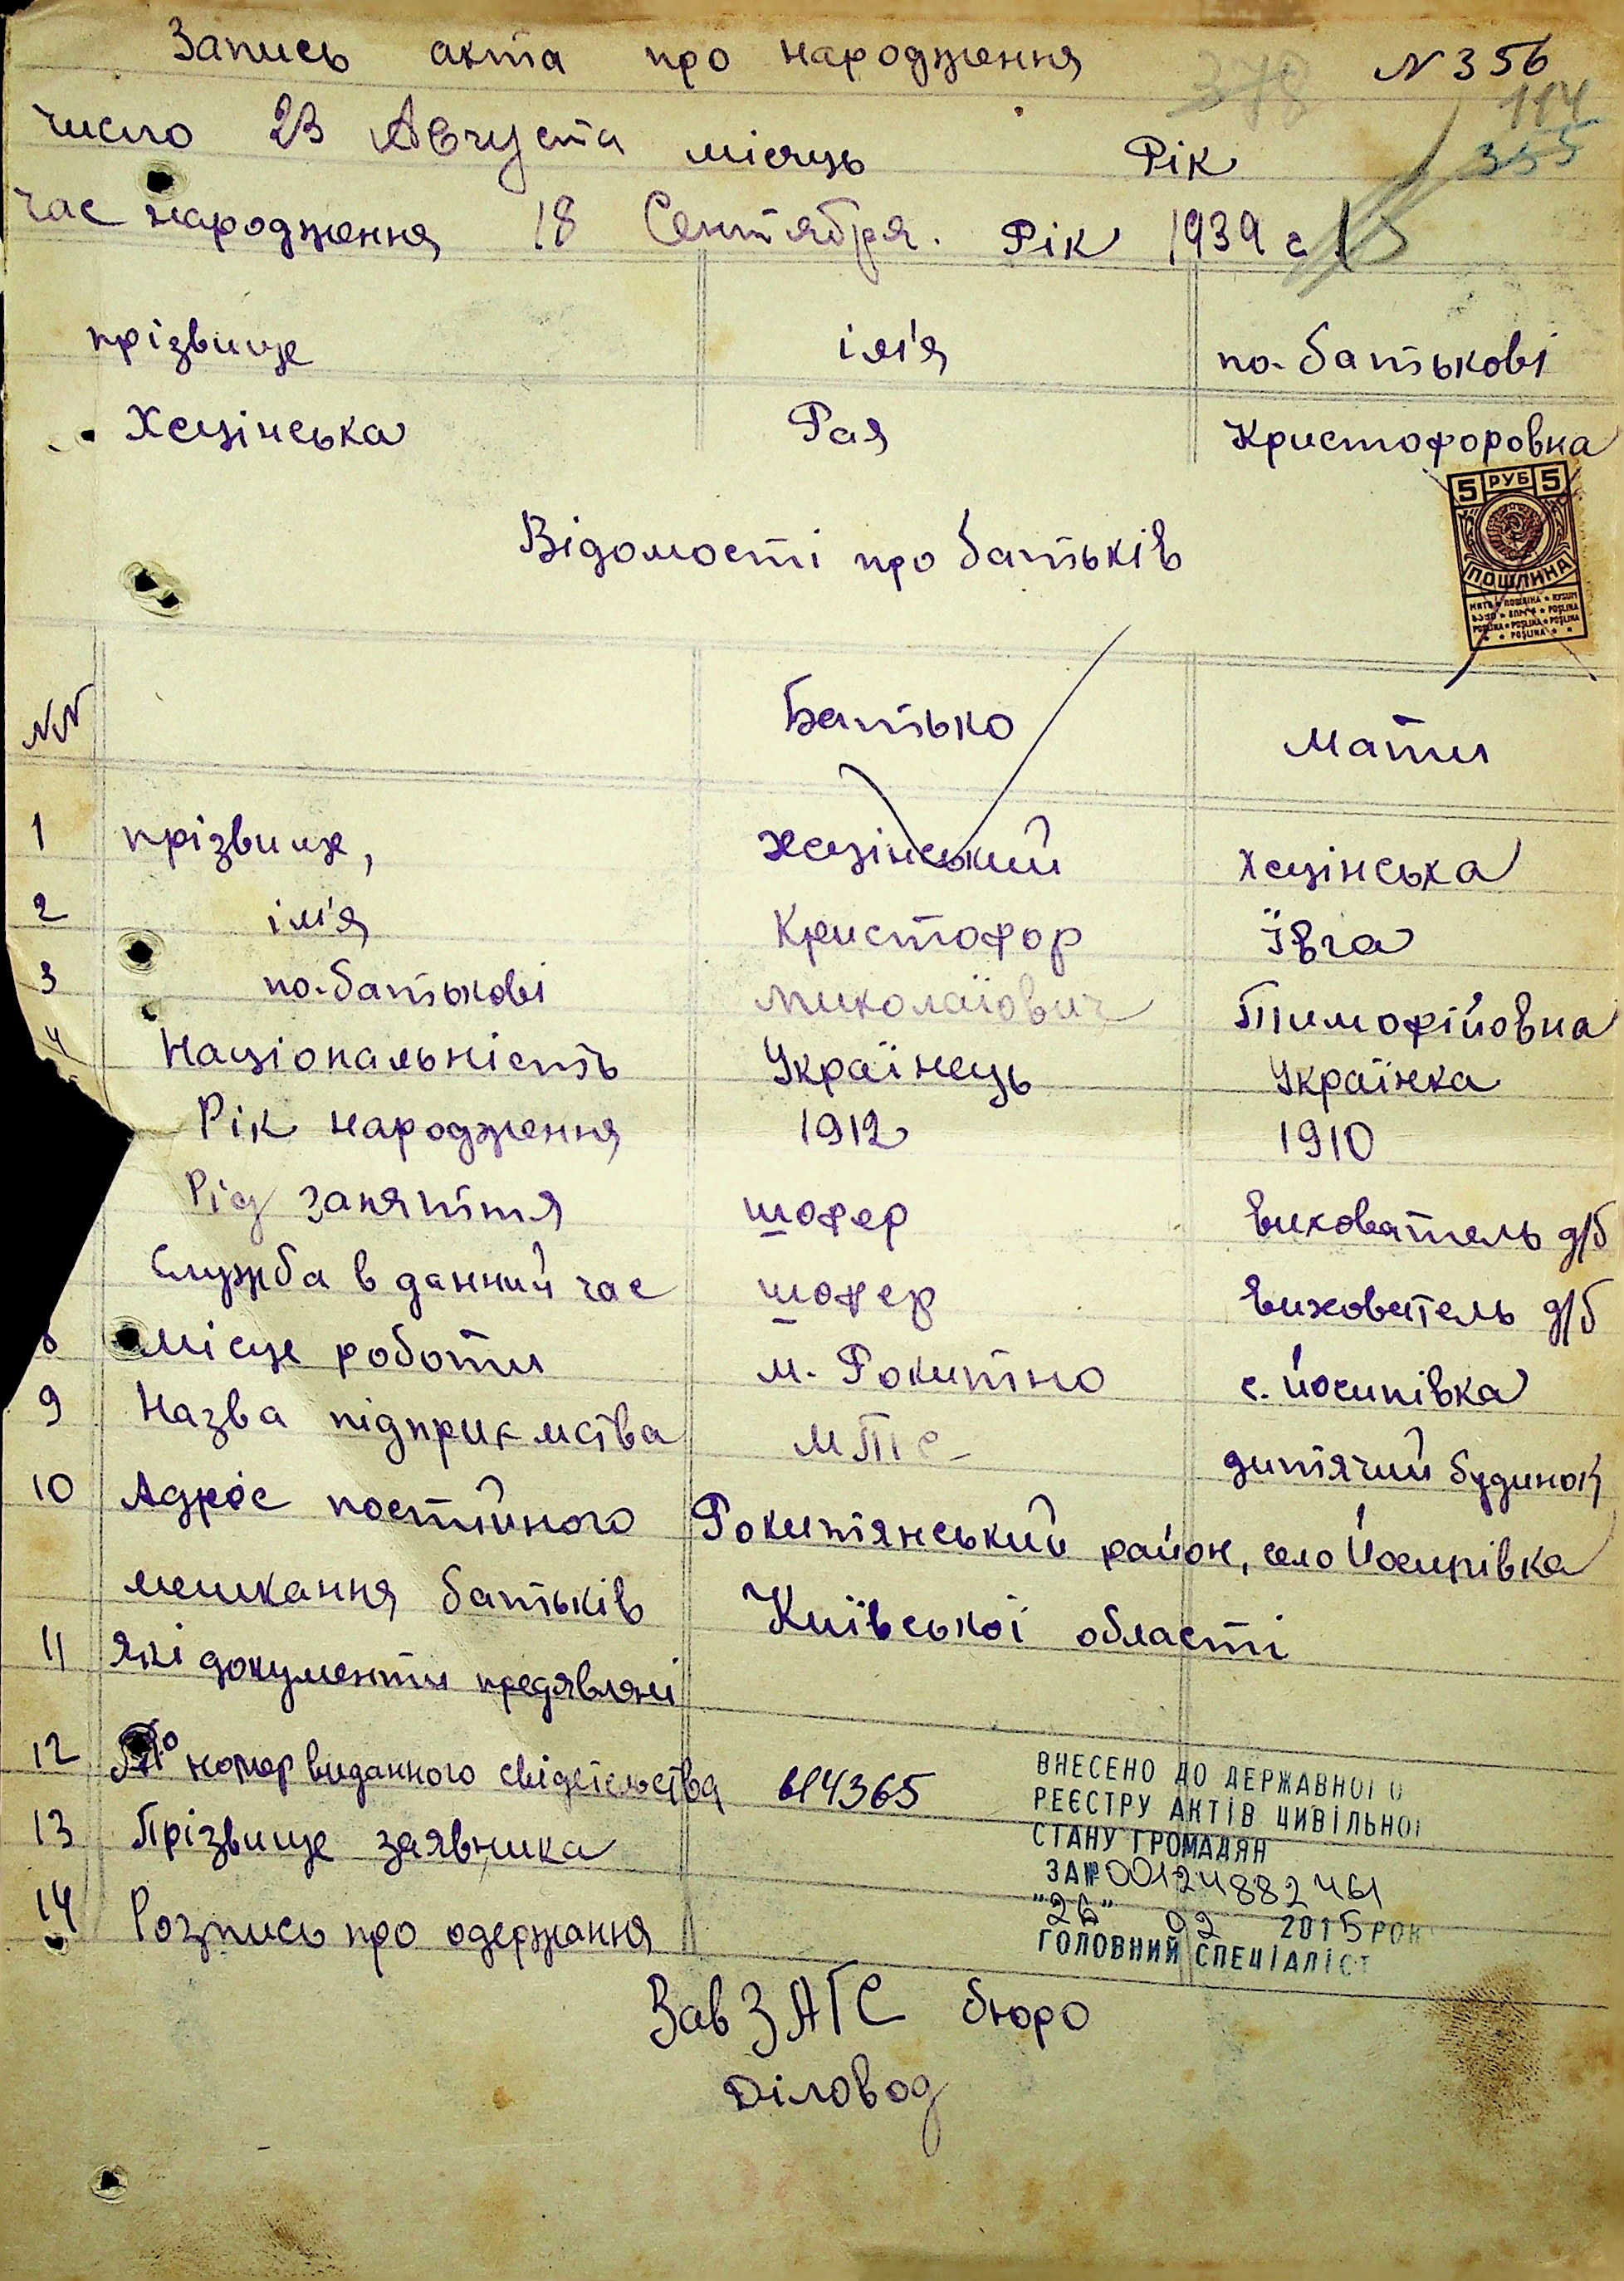 Запись акта про народження N 356
378 114
число 23 Августа місяць Рік 355
час народження 18 Сентября. Рік 1939 г
прізвище ім'я по-батькові
Хецінська Рая Христофоровна
5 РУБ 5
ПОШЛИНА
Відомості про батьків
NN Батько мати
1 прізвище, Хецінський Хецінська
2 ім'я Христофор Ївга
3 по-батькові миколаїович Тимофійовна
4 Національність Українець Українка
Рік народження 1912 1910
Рід заняття шофер вихователь д/б
Служба в данний час шофер вихователь д/б
8 місце роботи м. Рокитно с. Йосипівка
9 Назва підприємства МТС дитячий будинок
10 Адрес постійного Рокитянський район, село Йосипівка
мешкання батьків Київської області
11 Які документи предявлені
12 номер виданного свідетельства 614365
13 Прізвище заявника
14 Розпись про одержання
ВНЕСЕНО ДО ДЕРЖАВНОГО
РЕЄСТРУ АКТІВ ЦИВІЛЬНОГО
СТАНУ ГРОМАДЯН
ЗА № 00124882461
"26" 02 2015 РОК
ГОЛОВНИЙ СПЕЦІАЛІСТ
Зав ЗАГС бюро
Діловод